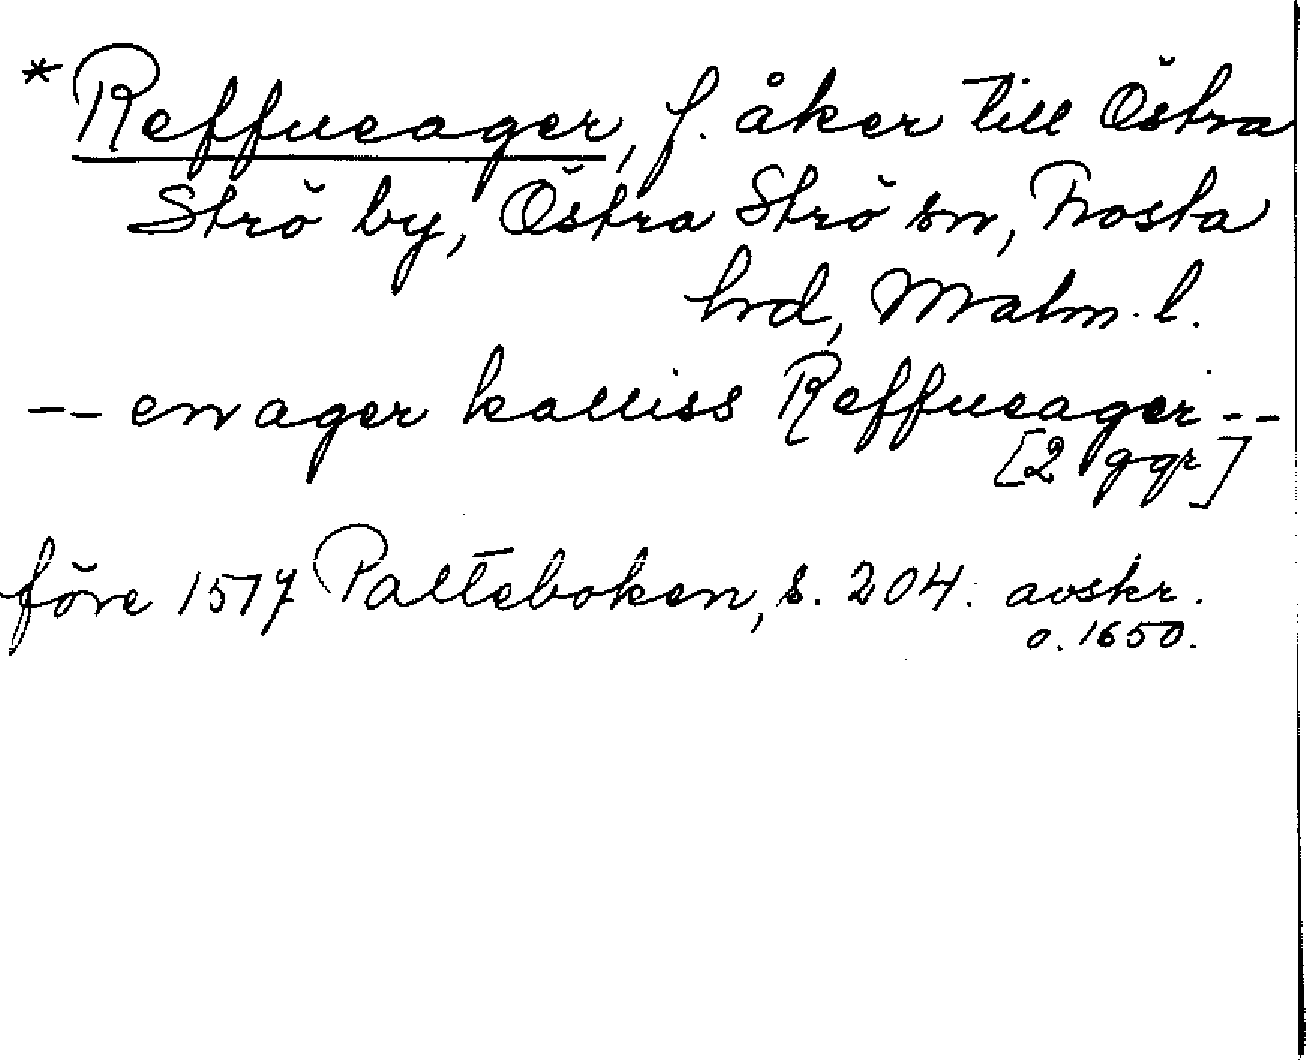 * Reffueager, f. åker till Östra
Strö by, Östra Strö sn, Frosta
hrd, Malm. l.
-- en ager kalliss Reffueager --
[2 ggr]
före 1517 Palteboken, s. 204. avskr.
o. 1650.